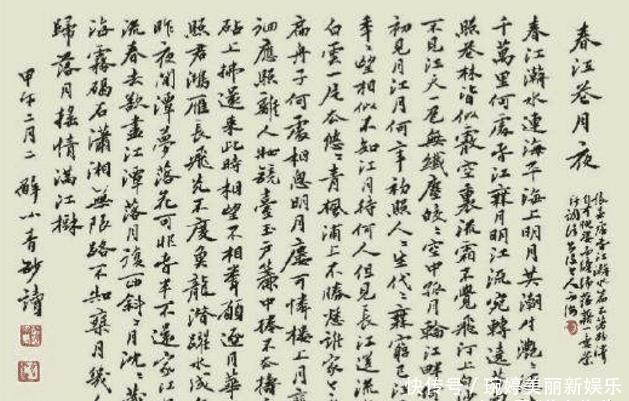 春江花月夜
春江潮水連海平海上明月共潮生灧
千萬里何處春江無月明江流宛轉遶芳
照花林皆似霰空裏流霜不覺飛汀上
不見江天一色無纖塵皎々空中孤月輪江畔何
初見月江月何年初照人々生代々無窮已江
年々望相似不知江月待何人但見長江送流
白雲一片去悠々青楓浦上不勝愁誰家今
扁舟子何處相思明月樓可憐樓上月裴
徊應照離人妝鏡臺玉戶簾中捲不去擣
砧上拂還來此時相望不相聞願逐月華
照君鴻雁長飛光不度魚龍潛躍水成文
昨夜閑潭夢落花可憐春半不還家江
流春去欲盡江潭落月復西斜々月沈々藏
海霧碣石瀟湘無限路不知乘月幾人
歸落月搖情滿江樹
甲午二月二 解小青抄讀
快传号 / 琬婷美丽新娱乐